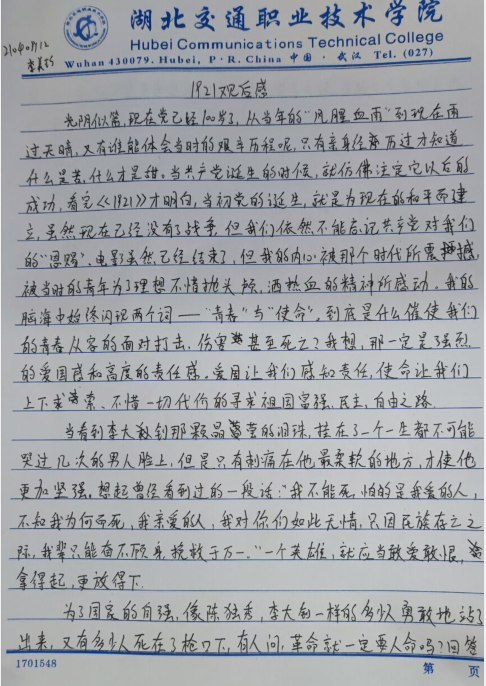 湖北交通职业技术学院
Hubei Communications Technical College
Wuhan 430079. Hubei, P·R. China 中国·武汉 Tel. (027)
1921观后感
光阴似箭,现在党已经100岁了,从当年的"风腥血雨"到现在雨
过天晴,又有谁能体会当时的艰辛历程呢,只有亲身经历过才知道
什么是苦,什么才是甜。当共产党诞生的时候,就仿佛注定它以后的
成功,看完《《1921》》才明白,当初党的诞生,就是为现在的和平而建
立,虽然现在已经没有了战争,但我们依然不能忘记共产党对我们
的"恩赐",电影虽然已经结束了,但我的内心被那个时代所震撼,
被当时的青年为了理想不惜抛头颅,洒热血的精神所感动。我的
脑海中始终闪现两个词——"青春"与"使命",到底是什么催使我们
的青春从容的面对打击,伤害甚至死亡?我想,那一定是强烈
的爱国感和高度的责任感。爱国让我们感知责任,使命让我们
上下求索、不惜一切代价的寻求祖国富强、民主、自由之路.
当看到李大钊那颗晶莹的泪珠,挂在了一个一生都不可能
哭过几次的男人脸上,但是只有刺痛在他最柔软的地方,才使他
更加坚强。想起曾经看到过的一段话:"我不能死,怕的是我爱的人,
不知我为何而死,我亲爱的人,我对你们如此无情,只因民族存亡之
际,我辈只能奋不顾身,挽救于万一."一个英雄,就应当敢爱敢恨,
拿得起,更放得下.
为了国家的自强,像陈独秀,李大钊一样的多少人勇敢地站了
出来,又有多少人死在了枪口下,有人问,革命就一定要人命吗?回答
1701548
第 页